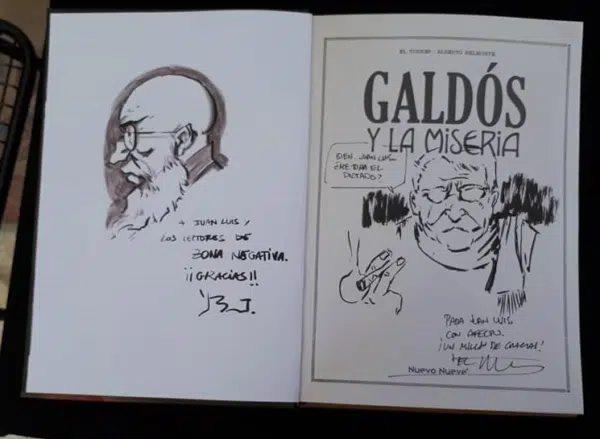 A JUAN LUIS Y
LOS LECTORES DE
ZONA NEGATIVA.
¡¡GRACIAS!!
EL TORRES · ALBERTO BELMONTE
GALDÓS
Y LA MISERIA
BIEN, JUAN LUIS,
¿ME DAS EL
DICTADO?
PARA JUAN LUIS
CON AFECTO.
¡UN MILLÓN DE GRACIAS!
NUEVO NUEVE